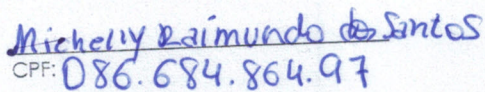 Michelly Raimundo dos Santos
CPF: 086.684.864.97